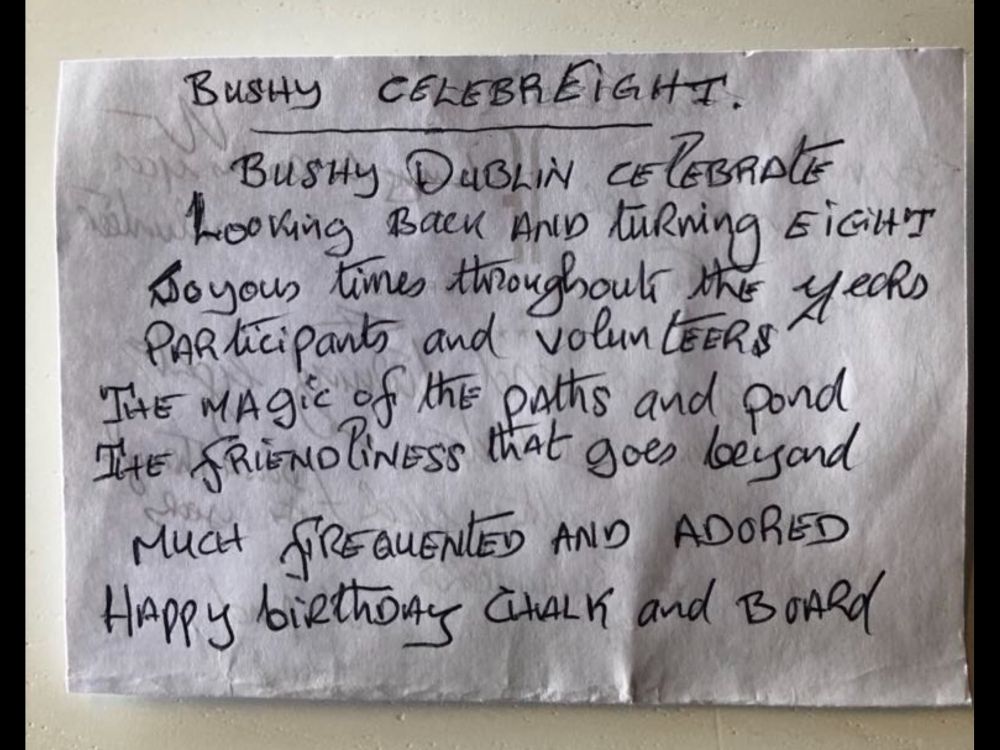 BUSHY CELEBREIGHT.
BUSHY DUBLIN CELEBRATE
Looking BACK AND turning EIGHT
Joyous times throughout the years
PARticipants and volunTEERS
THE MAgic of the paths and pond
THE fRIENDlINESS that goes beyond
MUCH fREQUENTED AND ADORED
HAPPy birthDAy CHALK and BOARd